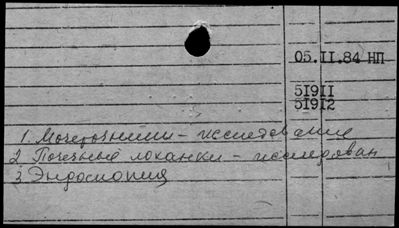 05.II.84 НП
5I9II
5I9I2
1. Мочеточники – исследование
2. Почечные лоханки – исследован
3. Эндоскопия